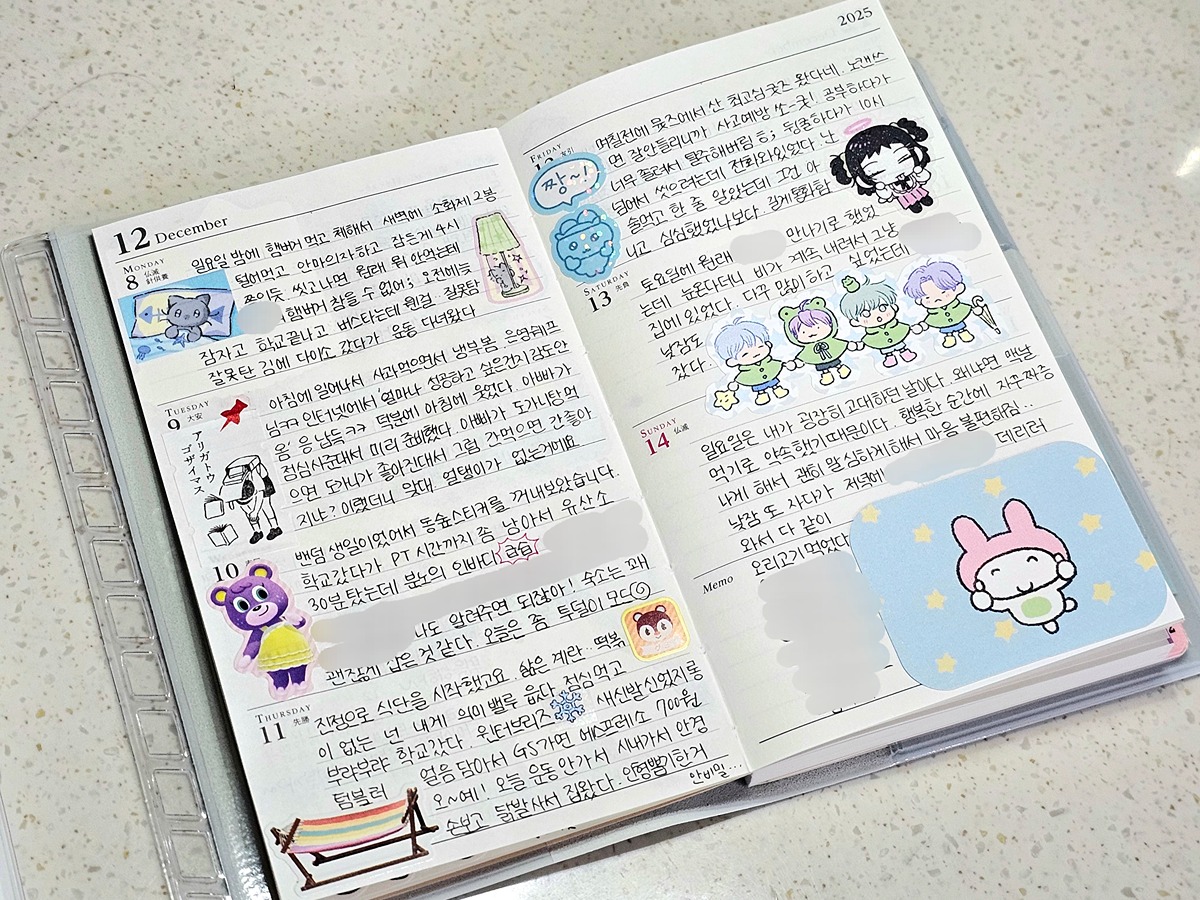 12 December
MONDAY
8 仏滅
針供養
일요일 밤에 햄버거 먹고 체해서 새벽에 소화제 2봉
털어먹고 안마의자하고 잠든게 4시
쪼이듯 씻고나면 원래 뭐 안먹는데
햄버거 참을 수 없어; 오전에 또
잠자고 학교끝나고 버스타는데 웬걸. 잘못탐
잘못탄 김에 다이소 갔다가 운동 다녀왔다
TUESDAY
9 大安
アリガトウ
ゴザイマス
아침에 일어나서 사과먹으면서 냉부봄 은영쉐프
님ㅋㅋ 인터넷에서 '얼마나 성공하고 싶은건지 감도안
옴' 은 납득ㅋㅋ 덕분에 아침에 웃었다. 아빠가
점심사준대서 미리 준비했다. 아빠가 도가니탕 먹
으면 도가니가 좋아진대서 그럼 간먹으면 간좋아
지냐? 이랬더니 맞대. 열탱이가 없는거예요
10
밴덤 생일이었어서 동숲스티커를 꺼내보았습니다.
학교갔다가 PT 시간까지 좀 남아서 유산소
30분 탔는데 분노의 인바디
나도 알려주면 되잖아! 숙소는 꽤
괜찮게 잡은 것 같다. 오늘은 좀 투덜이 모드
THURSDAY
11 先勝
진정으로 식단을 시작했고요. 삶은 계란.. 떡볶
이 없는 넌 내게 의미 밸류 없다. 점심 먹고
부랴부랴 학교갔다. 윈터브리즈 새신발 신었지롱
텀블러 얼음 담아서 GS가면 에스프레소 700원
오~예! 오늘 운동 안가서 시내가서 안경
손보고 닭발사서 집왔다. 인형뽑기한거
안비밀...
2025
FRIDAY
友引
짱~!
며칠전에 굿즈에서 산 최고심굿즈 왔다네. 노캔쓰
면 잘안들리니까 사고예방 쏘-굿! 공부하다가
너무 졸려서 탈주해버림 ㅎ; 뒹굴하다가 10시
넘어서 씻으려는데 전화와있었다. 난
술먹고 한 줄 알았는데 그건 아
니고 심심했었나보다. 길게통화함
SATURDAY
13 先負
토요일에 원래 만나기로 했었
는데 눈온다더니 비가 계속 내려서 그냥
집에 있었다. 다꾸 많이하고 싶었는데
낮잠도
잤다.
SUNDAY
14 仏滅
일요일은 내가 굉장히 고대하던 날이다. 왜냐면 맥날
먹기로 약속했기때문이다. 행복한 순간에 자꾸짜증
나게 해서 괜히 말 심하게해서 마음 불편하김..
낮잠 또 자다가 저녁에 데리러
와서 다 같이
오리고기 먹었다
Memo